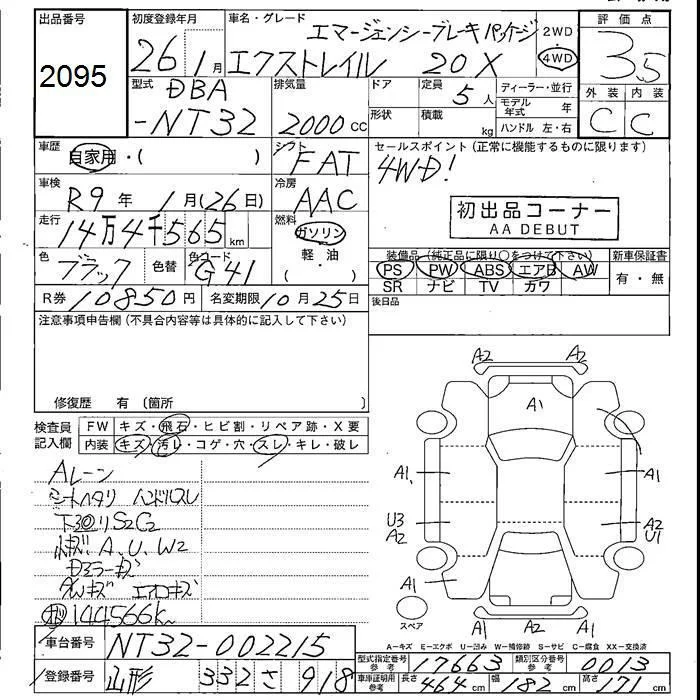 出品番号 初度登録年月 車名・グレード 評価点
2095 26 1月 エマージェンシーブレーキ パッケージ 2WD 3.5
エクストレイル 20X 4WD
型式 DBA 排気量 ドア 定員 5人 ディーラー・並行 外装 内装
-NT32 2000cc 形状 積載 kg モデル年式 年 C C
ハンドル 左・右
車歴 自家用・( ) シフト FAT セールスポイント(正常に機能するものに限ります)
4WD!
車検 R9年 1月(26日) 冷房 AAC
初出品コーナー
AA DEBUT
走行 14万4千565km 燃料 ガソリン
軽・油
( )
装備品(純正品に限り○をつけて下さい) 新車保証書
色 ブラック 色替 色コード G41 PS PW ABS エアB AW 有・無
SR ナビ TV カワ
R券 10850円 名変期限 10月25日 後日品
注意事項申告欄(不具合内容等は具体的に記入して下さい)
修復歴 有 (箇所 )
A2 A2
A1
A1 A1
U3 A2
A2 U1
A1
スペア A1 A1
A2
検査員記入欄 FW キズ・飛石・ヒビ割・リペア跡・X要
内装 キズ・汚レ・コゲ・穴・スレ・キレ・破レ
Aレーン
シートヘタリ ハンドルスレ
下回リS2C2
A、U、W2
ドアミラーキズ
エアロキズ
144566K
A-キズ E-エクボ U-凹み W-補修跡 S-サビ C-腐食 XX-交換済
車台番号 NT32-002215
型式指定番号 参考 17663 類別区分番号 参考 0013
登録番号 山形 332 さ 918
車庫証明用 参考 長さ 464cm 幅 182cm 高さ 171cm